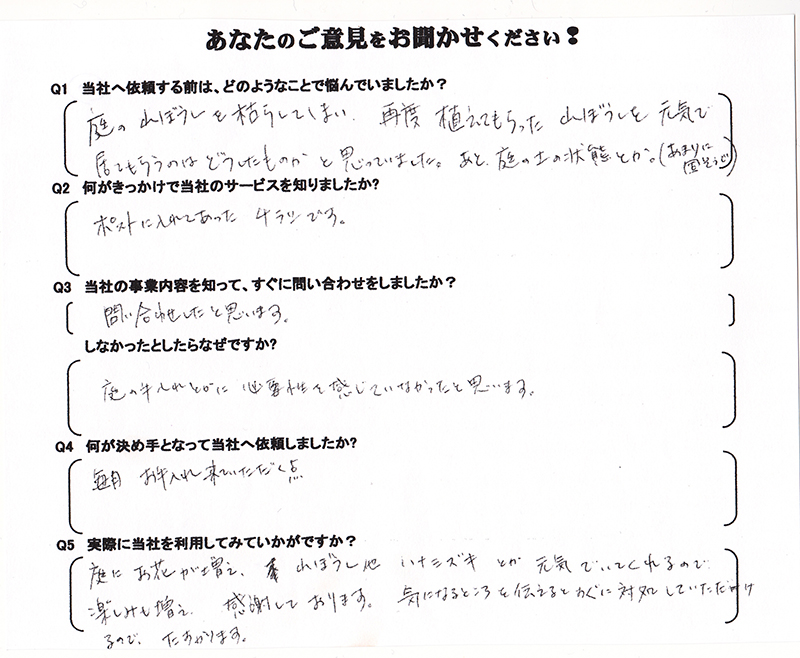 あなたのご意見をお聞かせください！
Q1 当社へ依頼する前は、どのようなことで悩んでいましたか？
庭の山ぼうしを枯らしてしまい、再度植えてもらった山ぼうしを元気で
居てもらうのはどうしたものかと思っていました。あと、庭の土の状態とか。(あまりに
固そうで)
Q2 何がきっかけで当社のサービスを知りましたか?
ポストに入れてあったチラシです。
Q3 当社の事業内容を知って、すぐに問い合わせをしましたか？
問い合わせしたと思います。
しなかったとしたらなぜですか?
庭の手入れとかに必要性を感じていなかったと思います。
Q4 何が決め手となって当社へ依頼しましたか?
毎月お手入れ来ていただく点
Q5 実際に当社を利用してみていかがですか？
庭にお花が増え、山ぼうし他ハナミズキとか元気でいてくれるので
楽しみも増え、感謝しております。気になるところを伝えるとすぐに対処していただけ
るので、たすかります。